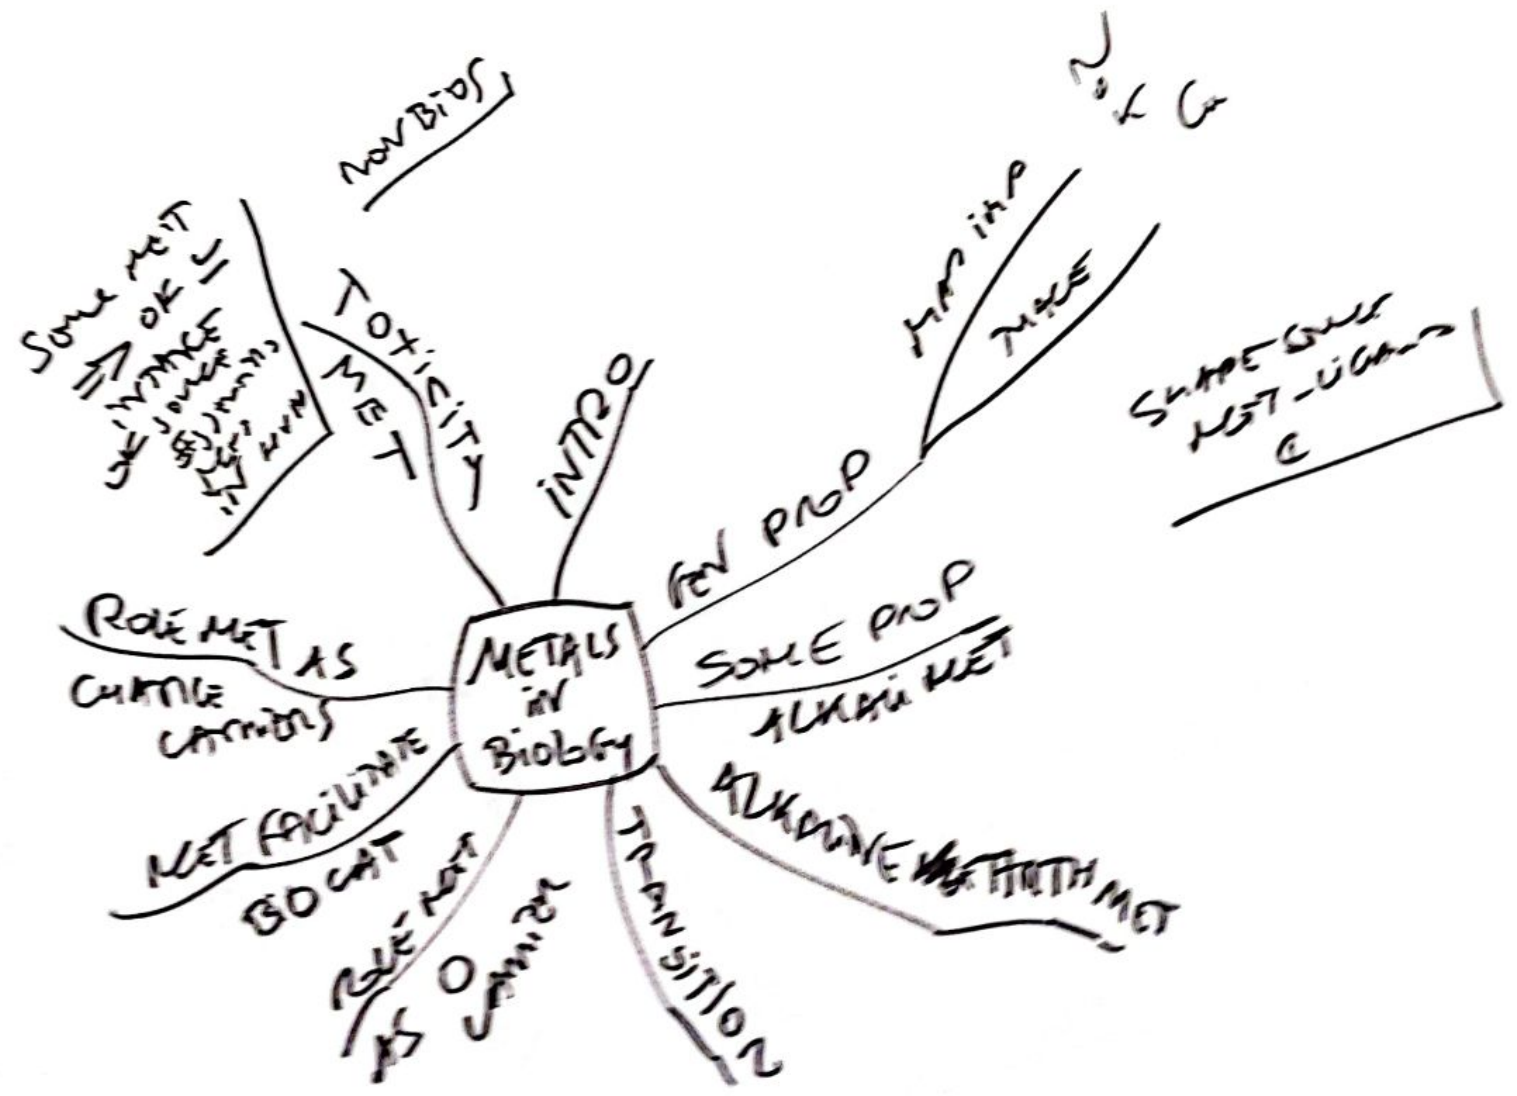 METALS
in
Biology
INTRO
GEN PROP
MAJ IMP
TRACE
SOME PROP
ALKALI MET
ALKALINE EARTH MET
TRANSITION
ROLE MET
AS O
CARRIER
MET FACILITATE
BIOCAT
ROLE MET AS
CHARGE
CARRIERS
TOXICITY
MET
Some MET
=> OK
NON BIOS
MET-LIGAND